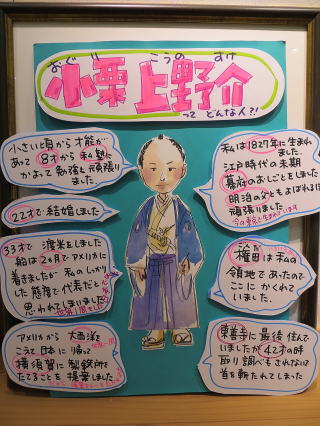 おぐり こうのすけ
小栗上野介
って どんな人?!
小さいと月から才能が
あって 8才から私塾に
かよって勉強も頑張り
ました。
22才で結婚しました
33才で 渡米をしました
船は2ヵ月でアメリカに
着きましたが 私のしっかり
した態度で代表だと
思われてしまいました
アメリカから 大西洋を
こえて日本に帰って
横須賀に製鉄所を
たてることを提案しました
私は1827年に生まれ
ました。
江戸時代の末期
幕府のおしごとをし
明治の父ともよばれるほど
頑張りました。
権田は私の
領地であったので
ここに かくれて
いました。
東善寺に最後住んで
いましたが42才の時
取り調べもされない
首を斬たれてしまった